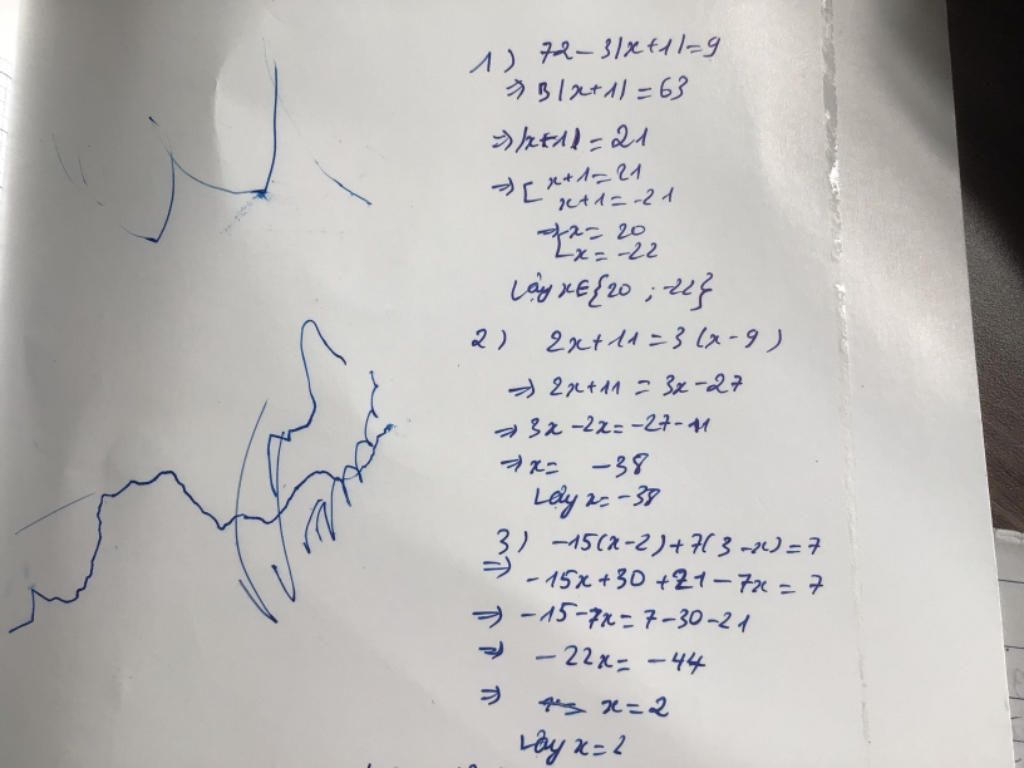 1) 72 - 3|x+1| = 9
⇒ 3|x+1| = 63
⇒ |x+1| = 21
⇒ [ x+1 = 21
x+1 = -21
⇒ [ x = 20
x = -22
Vậy x ∈ {20 ; -22}
2) 2x + 11 = 3(x - 9)
⇒ 2x + 11 = 3x - 27
⇒ 3x - 2x = -27 - 11
⇒ x = -38
Vậy x = -38
3) -15(x-2) + 7(3-x) = 7
⇒ -15x + 30 + 21 - 7x = 7
⇒ -15 - 7x = 7 - 30 - 21
⇒ -22x = -44
⇒ x = 2
Vậy x = 2